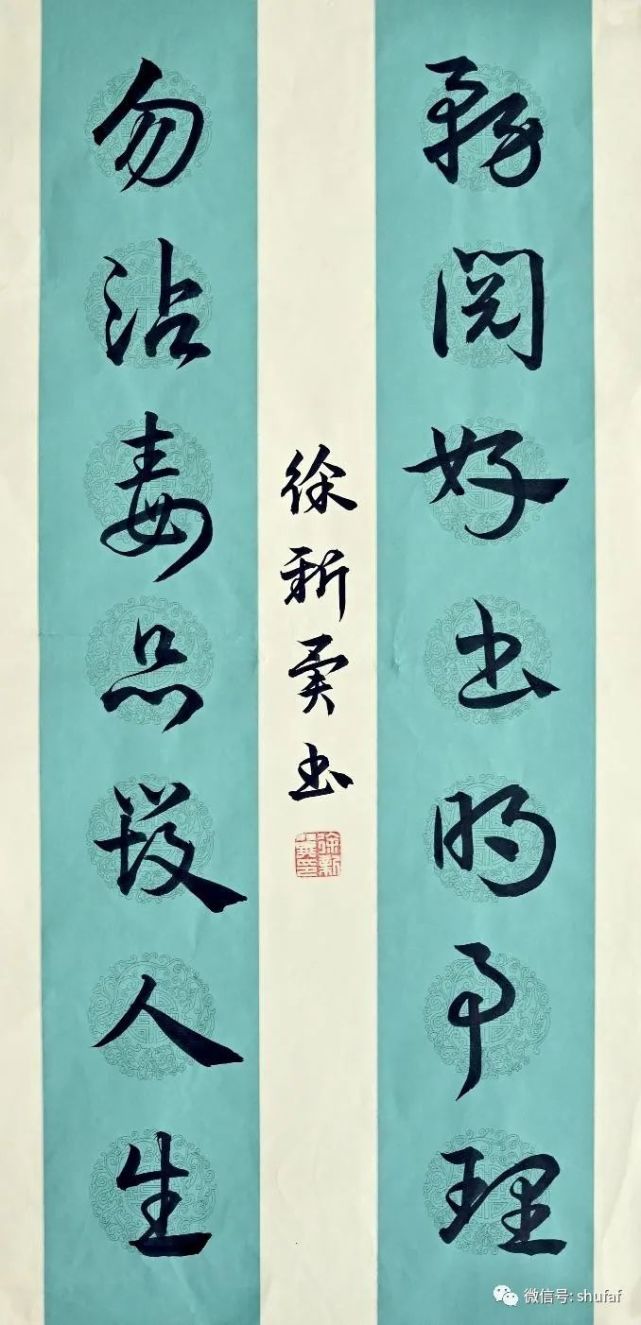 務阅好书明事理
勿沾毒品毁人生
徐新书
微信号: shufaf